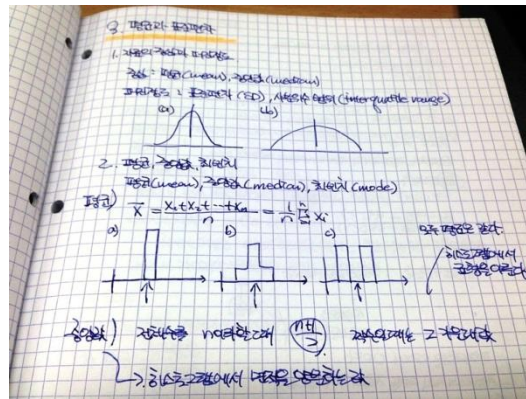 3. 평균과 표준편차
1. 자료의 중심과 퍼짐정도
중심 : 평균(mean), 중앙값(median)
퍼짐정도 : 표준편차 (SD), 사분위수 범위 (interquartile range)
(a) (b)
2. 평균, 중앙값, 최빈치
평균(mean), 중앙값(median), 최빈치(mode)
평균) x̄ = (x₁+x₂+…+xₙ)/n = 1/n Σ xᵢ
a) b) c) 모두 평균은 같다.
히스토그램에서 균형을 이룬다
중앙값) 전체수를 n이라 할 때 (n+1)/2 짝수일 때는 그 가운데 값
히스토그램에서 면적을 양분하는 값